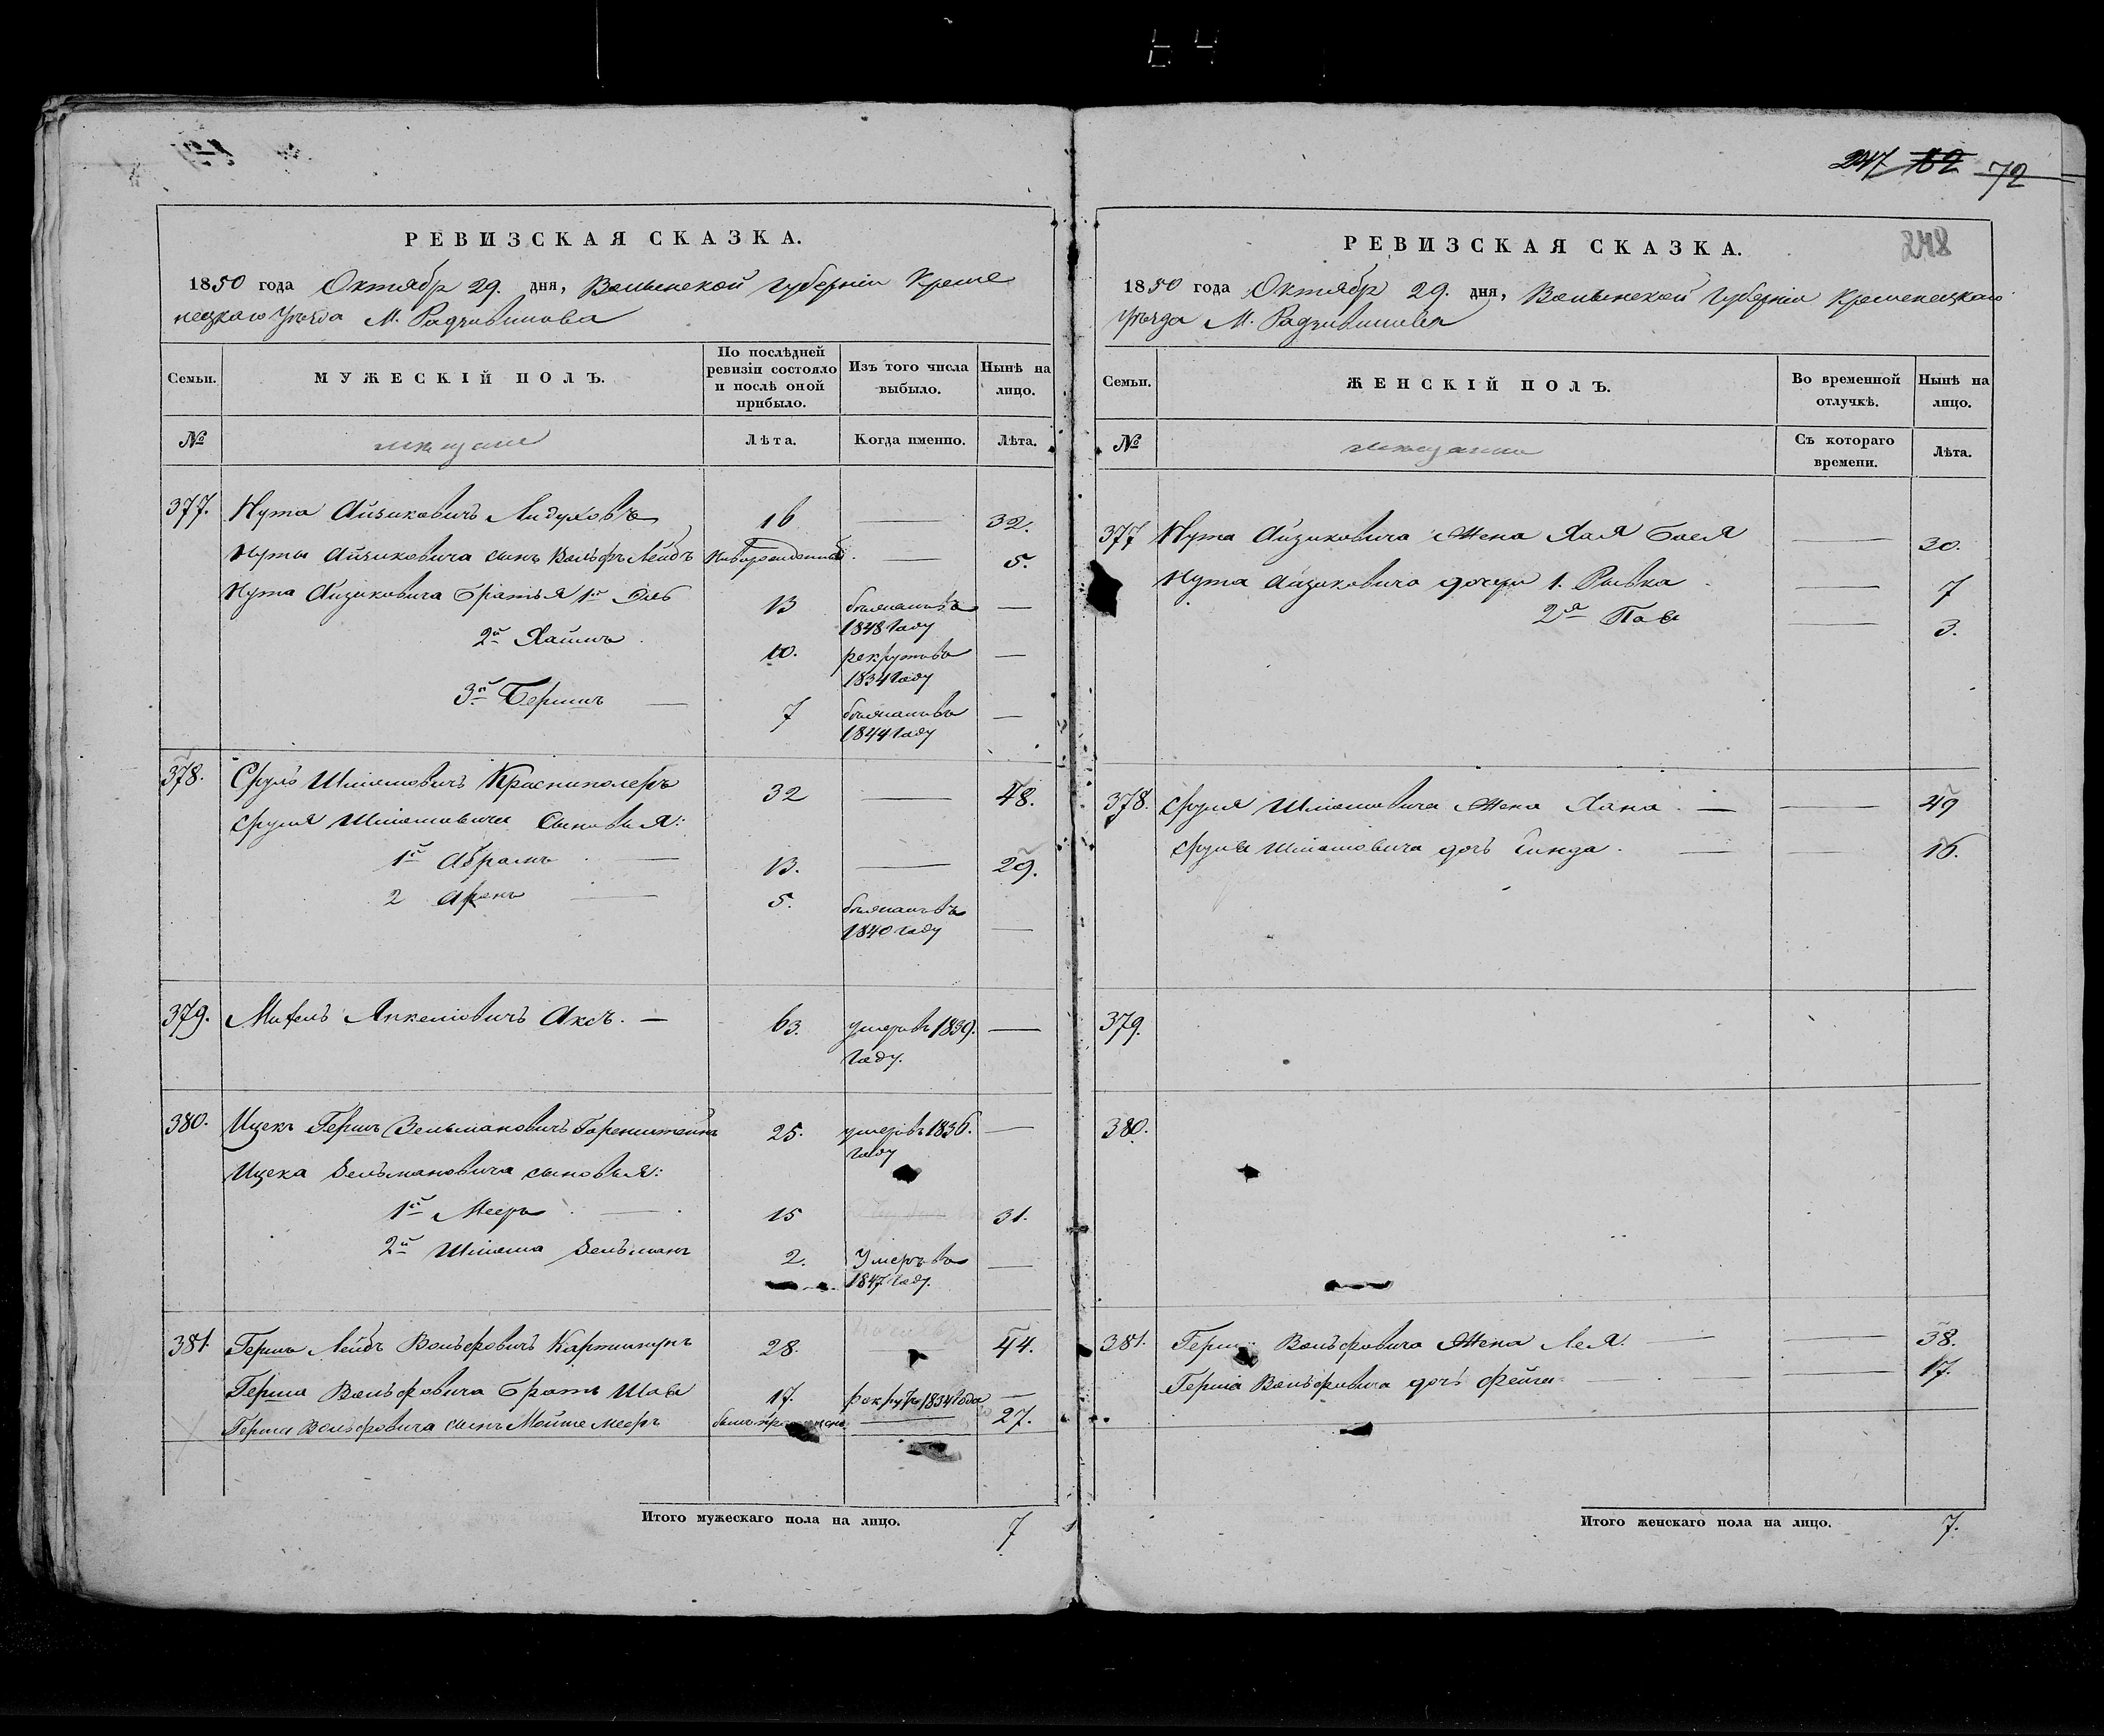 247 182 72
РЕВИЗСКАЯ СКАЗКА.
1850 года Октябр 29. дня, Волынской губерніи Креме
нецкаго Уѣзда М. Радзивилова
Семьи.
МУЖЕСКІЙ ПОЛЪ.
По послѣдней ревизіи состояло и послѣ оной прибыло.
Изъ того числа выбыло.
Нынѣ на лицо.
№
мещане
Лѣта.
Когда именно.
Лѣта.
377. Нута Айзиковичъ 16 — 32.
Нуты Айзиковича сынъ Вольфъ Лейбъ Новорожденный — 5.
Нута Айзиковича братья 1й 13 1848 году —
2й Хаимъ 10. рекрутъ въ 1834 году —
3й Бериш 7 1844 году —
378. Сруль Шмулевичъ 32 — 48.
Сруля Шмулевича сыновья:
1й Абрамъ 13. — 29.
2 Аронъ 5. 1840 году —
379. Михель Янкелiовичъ Аксъ. — 63. умеръ въ 1839. году. —
380. Ицекъ Гершъ Зельмановичъ Горенштейнъ 25. умеръ въ 1836. году —
Ицека Зельмановича сыновья:
1й Мееръ 15 31.
2й Зельманъ 2. Умеръ въ 1847 году. —
381. Гершъ Лейбъ Вольфовичъ 28. 44.
Герша Вольфовича братъ 17. рекрутъ 1834 года —
Герша Вольфовича сынъ Мойше Мееръ 27.
Итого мужескаго пола на лицо. 7
РЕВИЗСКАЯ СКАЗКА. 248
1850 года Октябр 29. дня, Волынской Губерніи Кременецкаго
Уѣзда М. Радзивилова
Семьи.
ЖЕНСКІЙ ПОЛЪ.
Во временной отлучкѣ.
Нынѣ на лицо.
№
мещанки
Съ котораго времени.
Лѣта.
377 Нута Айзиковича Жена Хая Бася — 30.
Нута Айзиковича дочери 1. Рывка — 7
2я — 3.
378. Сруля Шмулевича Жена Хана. — — 49
Сруля Шмулевича дочь — — 16.
379.
380.
381. Герша Вольфовича Жена Лея. — — 38.
Герша Вольфовича дочь Фейга — — 17.
Итого женскаго пола на лицо. 7.